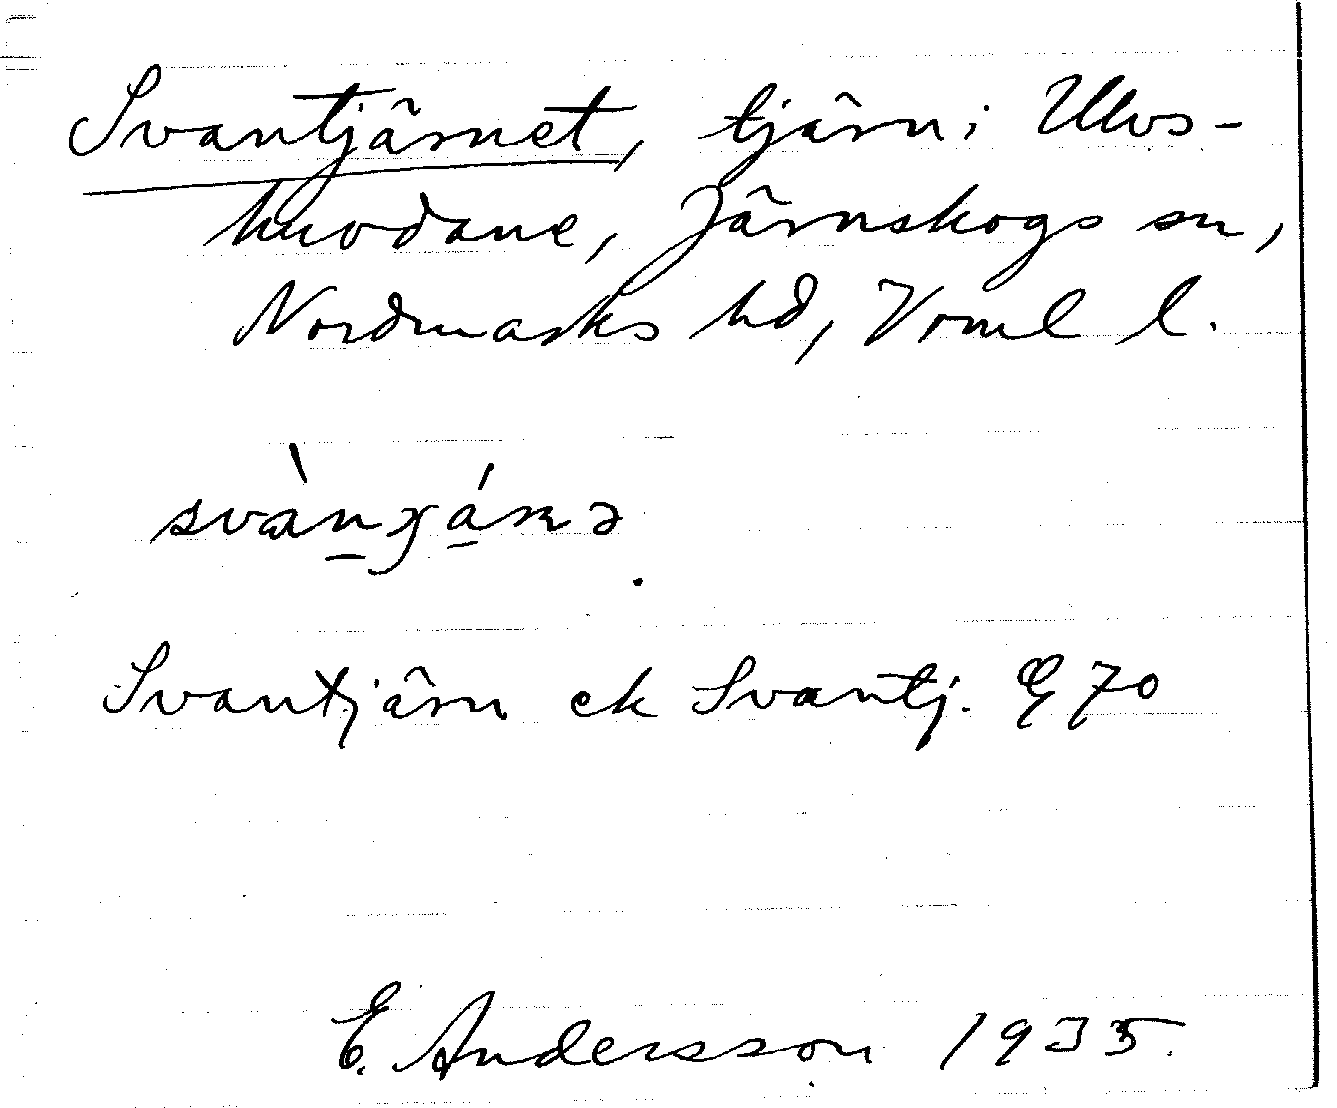 Svantjärnet, tjärn i Ulvs-
huvdane, Järnskogs sn,
Nordmarks hd, Vrml l.
Svantjärn ek Svantj. E 70
E. Andersson 1935.